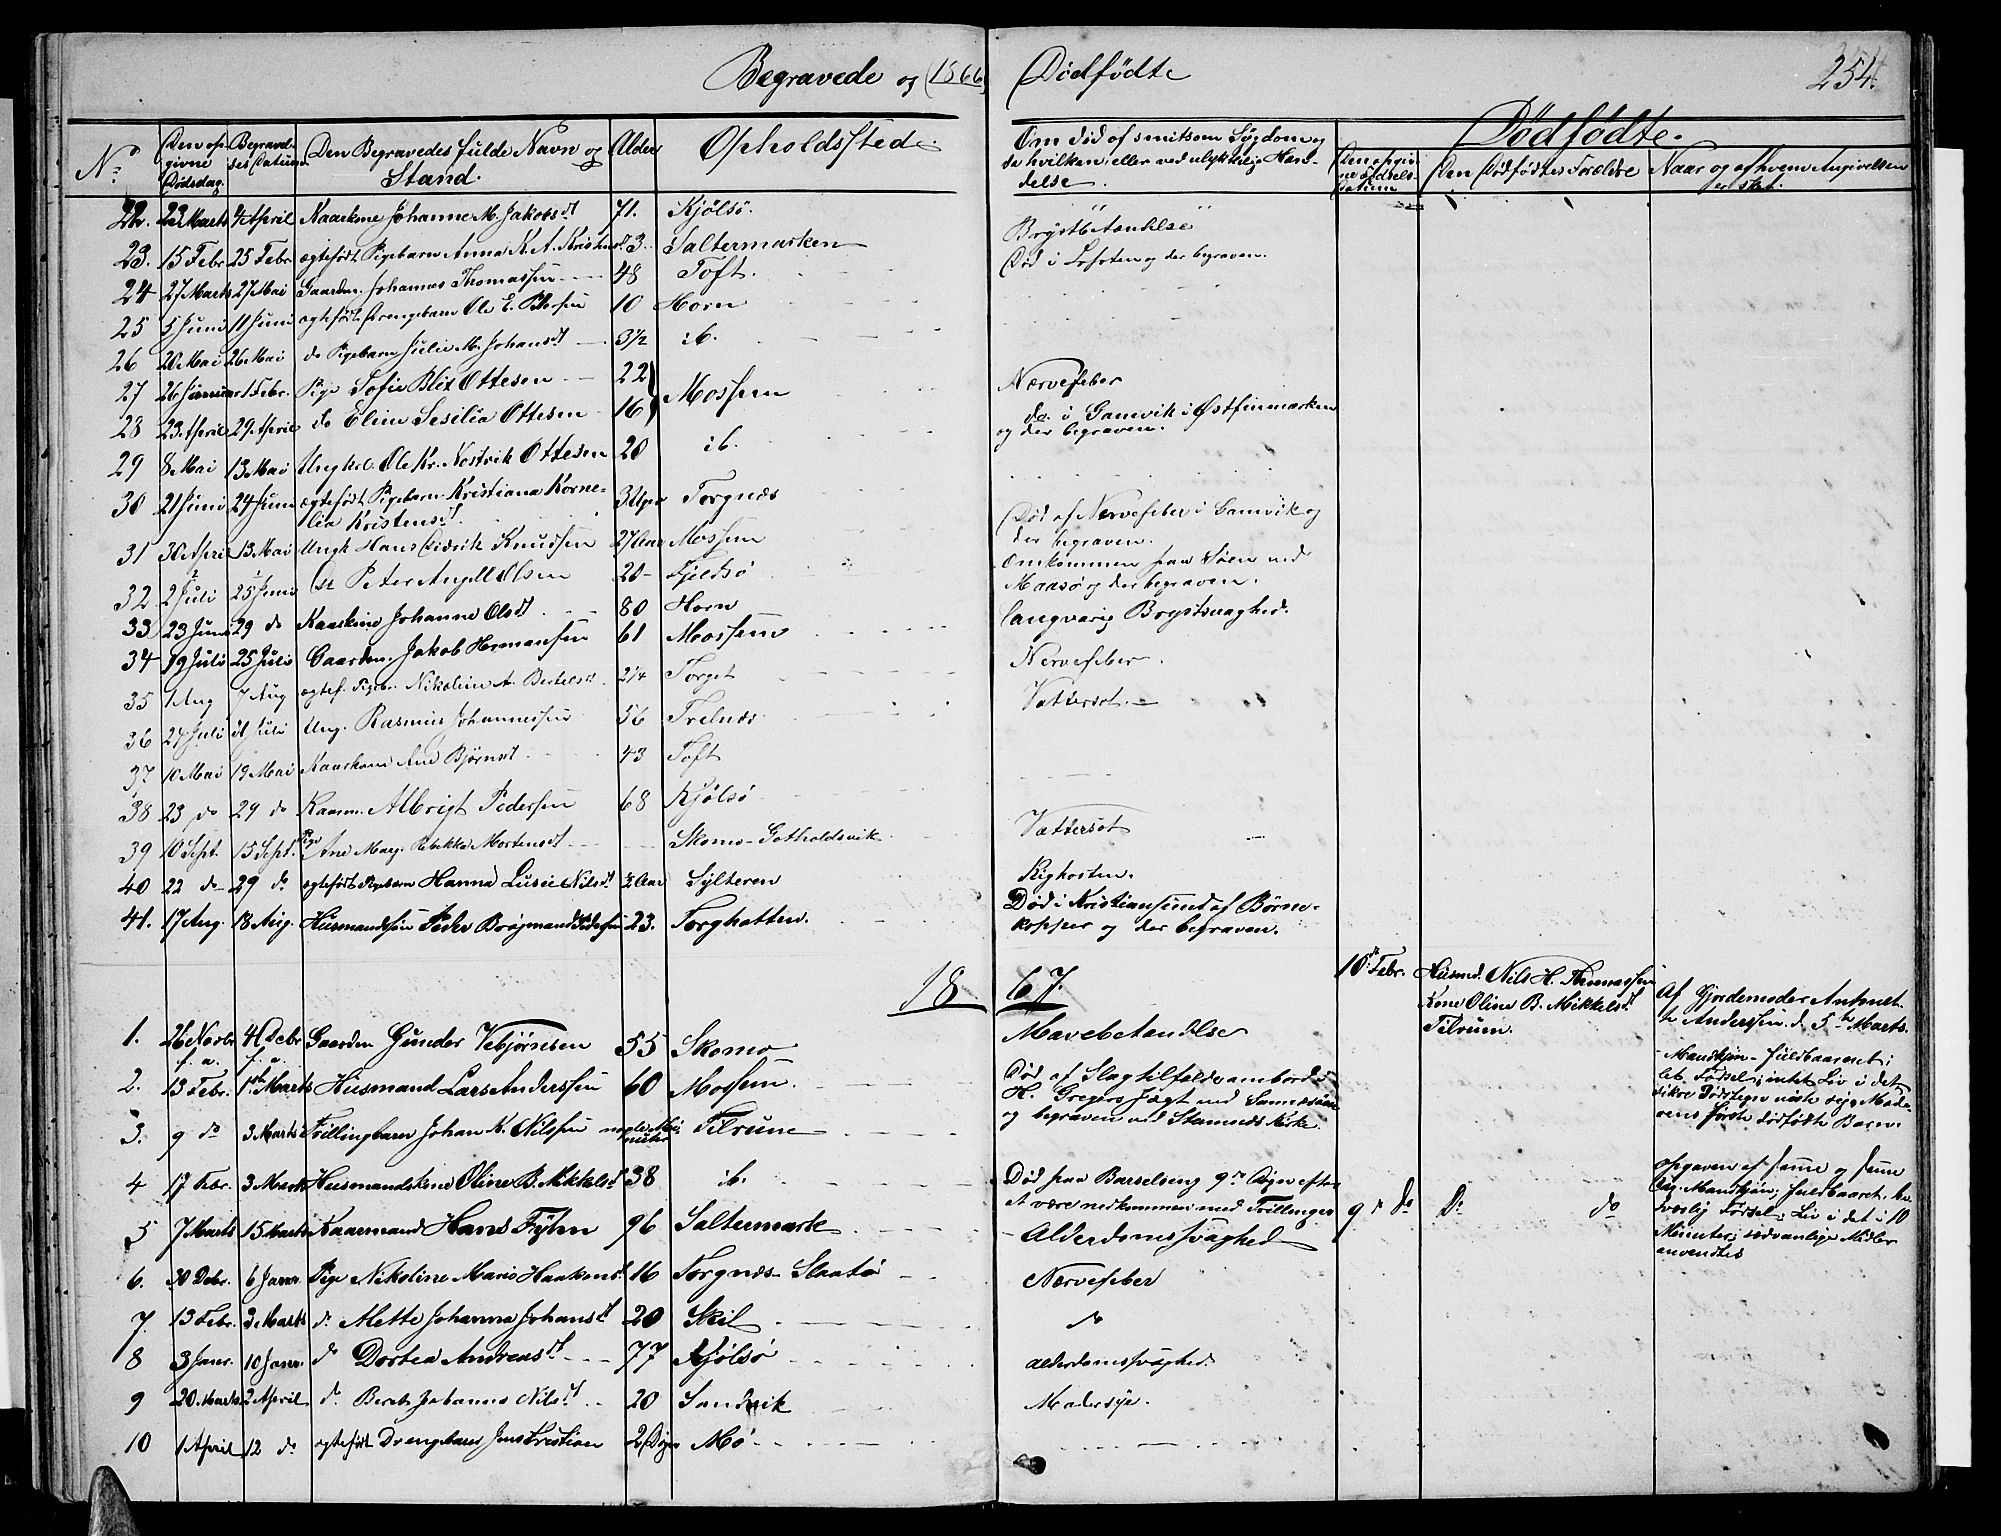 Begravede og (1866) Dødfødte
254.
No. Den opgivne Dødsdag. Begravelses Datum. Den Begravedes fulde Navn og Stand. Alder Opholdssted. Om død af smitsom Sygdom og da hvilken, eller ved ulykkelig Hændelse. Dødfødte. Den opgivne Fødselsdatum Den Dødfødtes Forældre Naar og af hvem Angivelsen er sket.
22. 23 Marts 4 April Kaarkone Johanne M. Jakobsdt 71. Kjølsø.
23. 15 Febr 25 Febr ægtefødt Pigebarn Anna K. A. 3. Saltermarken Brystbetændelse
24 27 Marts 27 Mai Gaardm. Johannes Thomassen 48 Toft. Død i Lofoten og der begraven.
25 5 Juni 11 Juni ægtefødt Drengebarn Ole E. 10 Horn
26 20 Mai 26 Mai do Pigebarn Julie M. Johansdt 3½ ib.
27 26 Januar 1 Febr. Pige Sofie Blix Ottesen 22 Mossem Nervefeber
28 23 April 29 April do Eline Sesilia Ottesen 16 do. i Gamvik i Østfinmarken og der begraven.
29 8 Mai 13 Mai Ungkl. Ole Kr. Nostvik Ottesen 20 ib.
30 21 Juni 24 Juni ægtefødt Pigebarn Kristiana Kornelia Kristensdt 3 Uger Torgnæs
31 30 April 13 Mai Ungk Hans Didrik Knudsen 27 Aar Mossem Død af Nervefeber i Gamvik og der begraven.
32 2 Juli 25 Juni Peter Angell Olsen 20 Fjeldsø Omkommen paa Søen ved Maasø og der begraven.
33 23 Juni 29 do Kaarkone Johanne Olsdt 80 Horn Langvarig Brystsvaghed.
34 19 Juli 25 Juli Gaardm. Jakob Hermansen 61 Mossem Nervefeber.
35 1 Aug 7 Aug ægtef. Pigebr. Nikoline A. Bertelsdt 2¼ Torget Vattersot.
36 27 Juli 31 Juli Ung. Rasmus Johannessen 56 Trelnæs
37 10 Mai 19 Mai Kaarkone Ane Bjørnsdt 43 Toft
38 23 do 29 do Kaarm. Albrigt Pedersen 68 Kjølsø Vattersot
39 10 Sept. 15 Sept. Pige Ane Marg. Rebekka Mortensdt Skomo-Gotholdsvik
40 22 do 29 do ægtefødt Pigebarn Hanna Lusie Nilsdt ½ Aar Sylteren Kighosten.
41. 17 Aug. 18 Aug. Husmandssøn Peder Brøjmand Pedersen 23. Torghatten. Død i Kristiansund af Børnekopper og der begraven.
1867.
1. 26 Novbr f. a. 4 Debr f. a. Gaardm Gunder Vebjørnsen 55 Skomo Mavebetændelse
10de Febr. Husmd. Nils H. Thomassen Kone Oline B. Mikkelsdt Tilrum. Af Gjordemoder Anderssen d. 5te Marts. Mandkjøn - fuldbaaret; let Fødsel; intet Liv i det sikre Dødstegn viste sig; Moderens første dødfødte Barn.
2. 13 Febr. 1ste Marts Husmand Lars Anderssen 60 Mossem. Død af Slagtilfælde ombord i H. Gregers Jægt ved og begraven ved Stamsunds Kirke.
3. 9 do 3 Marts Tvillingbarn Johan K. Nilsen nogle Minuter Tilrum
4 17 Febr. 3 Marts Husmandskone Oline B. Mikkelsdt 38 ib. Død paa Barselseng 9de Døgn efter at være nedkommen med Tvillinger
9de do Do do opgaven af samme og samme Dag. Mandkjøn; fuldbaaret; besværlig Fødsel; Liv i det i 10 Minuter; sædvanlige Midler anvendtes
5 7 Marts 15 Marts Kaarmand Hans Fylin 96 Saltermark Alderdomssvaghed
6. 30 Debr. 6 Janr. Pige Nikoline Marie Haakensdt 16 Torgnæs-Slaatø Nervefeber
7. 13 Febr. 3 Marts do Mette Johanna Johansdt 20 Skil do
8 3 Janr. 10 Janr. do Dortea Andreasdt 77 Kjølsø alderdomssvaghed.
9 20 Marts 2 April do Berit Johanna Nilsdt 20 Sandvik Modersyge.
10 1 April 12 do ægtefødt Drengebarn Jens Kristian 2 Døgn Mo